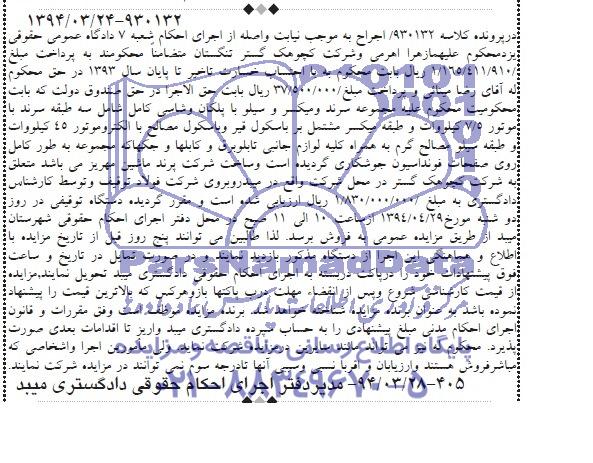 ۱۳۹۴/۰۳/۲۴-۹۳۰۱۳۲
درپرونده کلاسه ۹۳۰۱۳۲/ اجراح به موجب نیابت واصله از اجرای احکام شعبه ۷ دادگاه عمومی حقوقی
یزدمحکوم علیهمازهرا اهرمی وشرکت کچوهک گستر تنگستان متضامناً محکومند به پرداخت مبلغ
۱/۱۶۵/۴۱۱/۹۱۰/ ریال بابت محکوم به با احتساب خسارت تاخیر تا پایان سال ۱۳۹۳ در حق محکوم
له آقای رضا میبدی و پرداخت مبلغ ۳۷/۵۰۰/۰۰۰/ ریال بابت حق الاجرا در حق صندوق دولت که بابت
محکومیت محکوم علیه مجموعه سرند ومیکسر و سیلو با پلکان وشاسی کامل شامل سه طبقه سرند با
موتور ۷/۵ کیلووات و طبقه میکسر مشتمل بر باسکول قیر وباسکول مصالح با الکتروموتور ۴۵ کیلووات
و طبقه سیلو مصالح گرم به همراه کلیه لوازم جانبی تابلوبرق و کابلها و جکهاکه مجموعه به طور کامل
روی صفحات فونداسیون جوشکاری گردیده است وساخت شرکت پرند ماشین مهریز می باشد متعلق
به شرکت کچوهک گستر در محل شرکت واقع در میبدروبروی شرکت فولاد توقیف وتوسط کارشناس
دادگستری به مبلغ ۱/۸۳۰/۰۰۰/۰۰۰/ ریال ارزیابی شده است و مقرر گردیده دستگاه توقیفی در روز
دو شنبه مورخ۱۳۹۴/۰۴/۲۹ ازساعت ۱۰ الی ۱۱ صبح در محل دفتر اجرای احکام حقوقی شهرستان
میبد از طریق مزایده عمومی به فروش برسد. لذا طالبین می توانند پنج روز قبل از تاریخ مزایده با
اطلاع و هماهنگی این اجرا از دستگاه مذکور بازدید نمایند و در صورت تمایل در تاریخ و ساعت
فوق پیشنهادات خود را درپاکت دربسته به اجرای احکام حقوقی دادگستری میبد تحویل نمایند.مزایده
از قیمت کارشناسی شروع وپس از انقضاء مهلت درب پاکتها بازوهرکس که بالاترین قیمت را پیشنهاد
نموده باشد به عنوان برنده مزایده شناخته خواهد شد. برنده مزایده موظف است وفق مقررات و قانون
اجرای احکام مدنی مبلغ پیشنهادی را به حساب سپرده دادگستری میبد واریز تا اقدامات بعدی صورت
پذیرد. محکوم له نیز می تواند مانند سایرین درمزایده شرکت نماید ولی مامورین اجرا واشخاصی که
مباشرفروش هستند وارزیابان و اقربا نسبی وسببی آنها تادرجه سوم نمی توانند در مزایده شرکت نمایند.
۹۴/۰۳/۲۸-۴۰۵- مدیردفتر اجرای احکام حقوقی دادگستری میبد
ParsNamadData
پایگاه اطلاع رسانی مناقصه و مزایده
۰۲۱-۸۸۳۴۹۶۷۰-۵